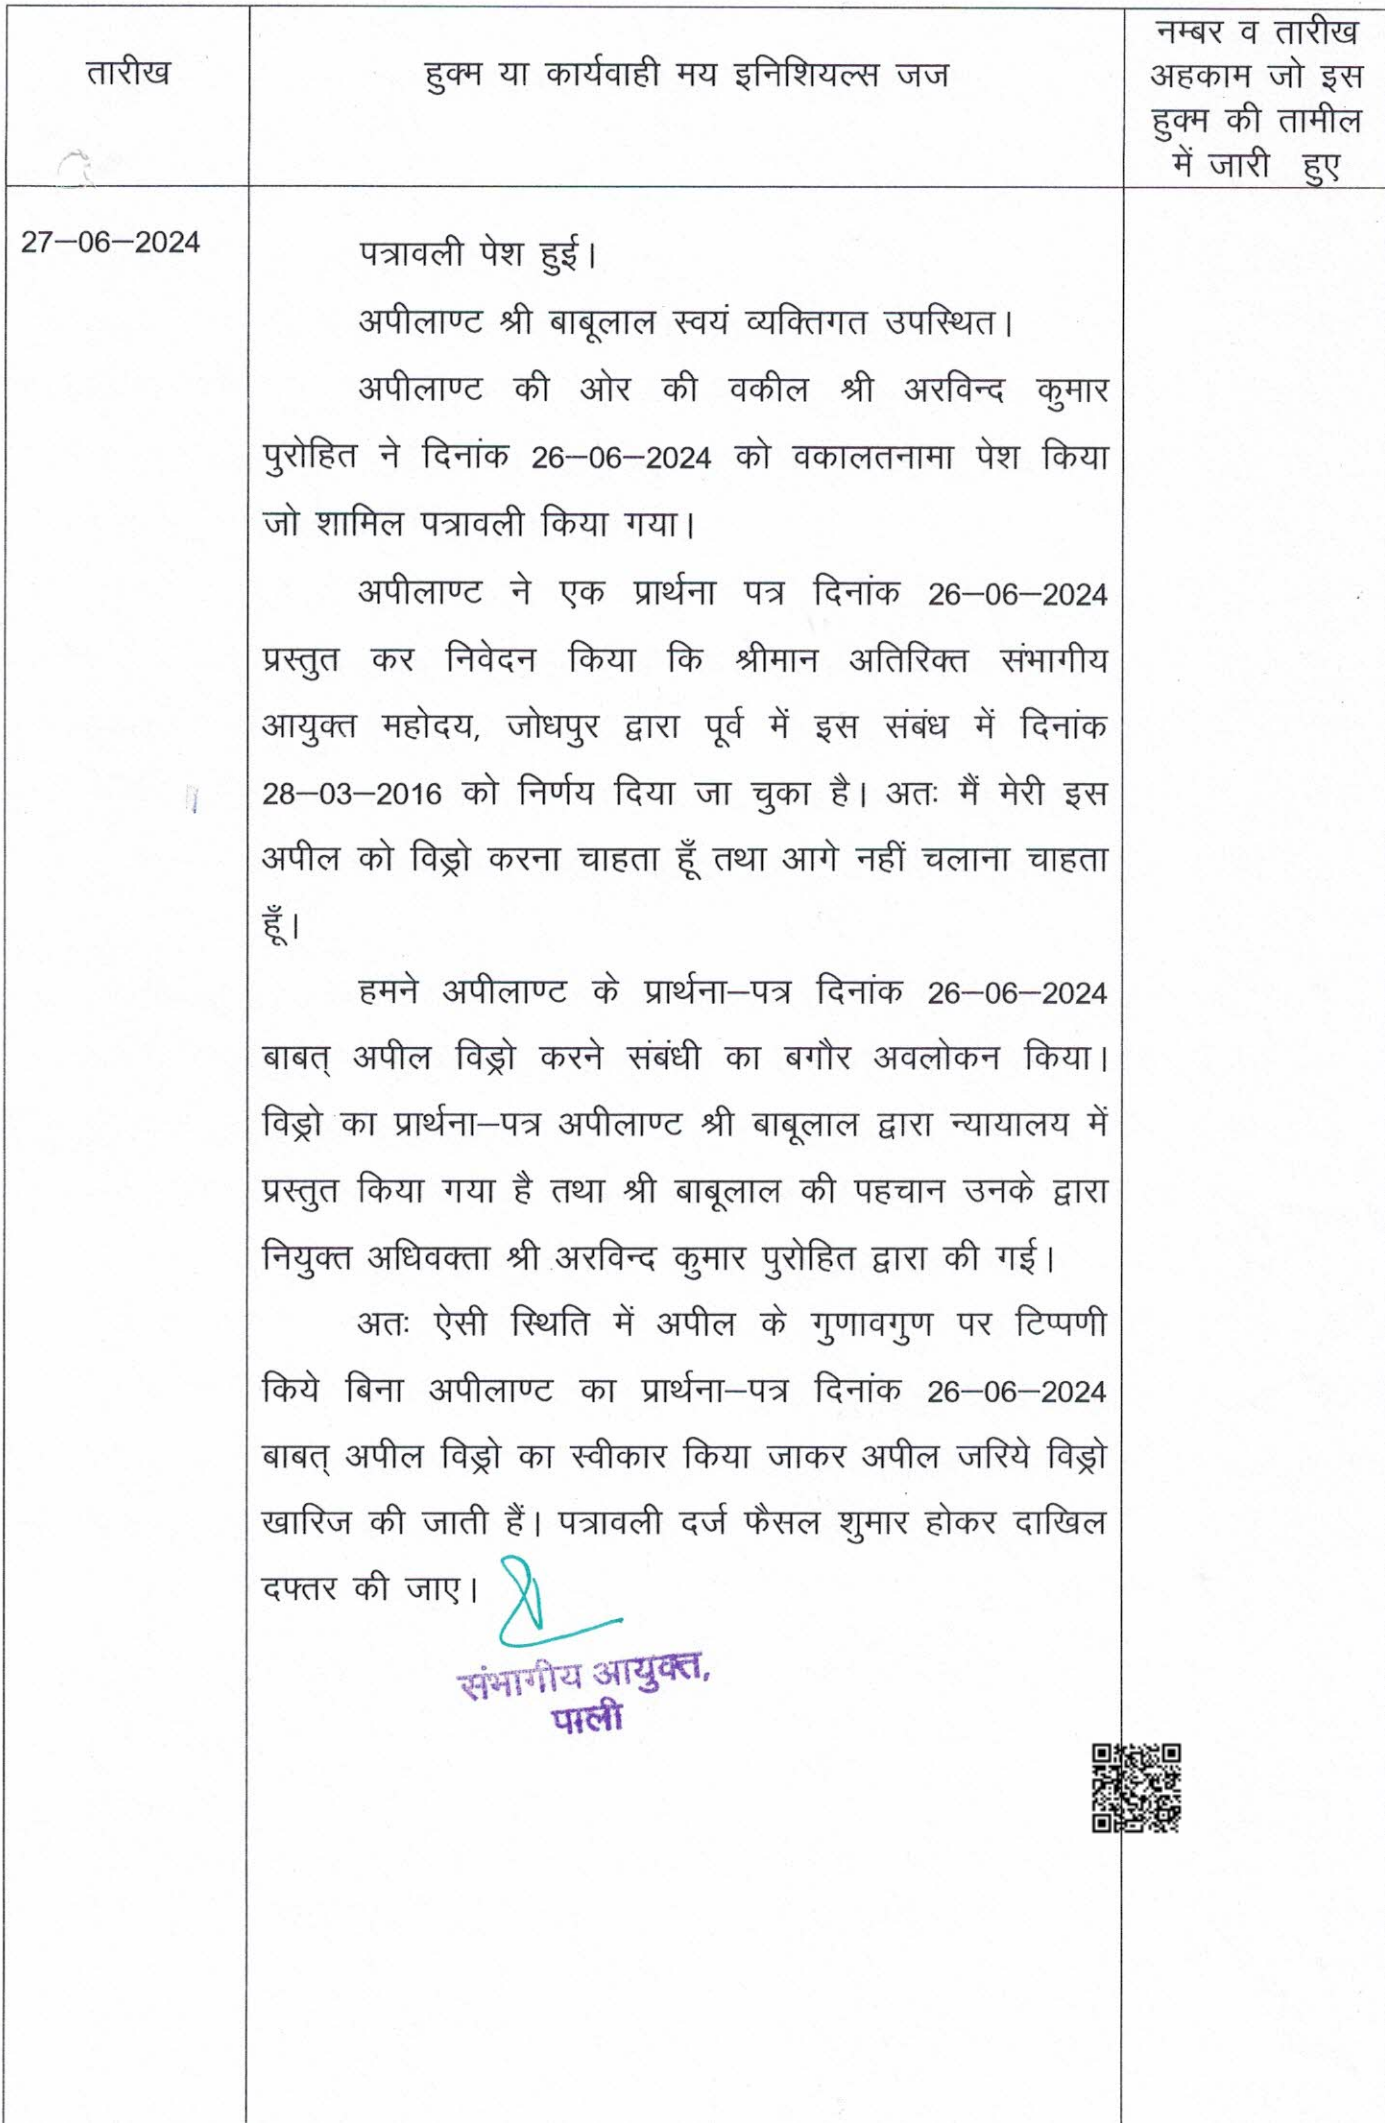 तारीख
हुक्म या कार्यवाही मय इनिशियल्स जज
नम्बर व तारीख
अहकाम जो इस
हुक्म की तामील
में जारी हुए
27–06–2024
पत्रावली पेश हुई।
अपीलाण्ट श्री बाबूलाल स्वयं व्यक्तिगत उपस्थित।
अपीलाण्ट की ओर की वकील श्री अरविन्द कुमार
पुरोहित ने दिनांक 26–06–2024 को वकालतनामा पेश किया
जो शामिल पत्रावली किया गया।
अपीलाण्ट ने एक प्रार्थना पत्र दिनांक 26–06–2024
प्रस्तुत कर निवेदन किया कि श्रीमान अतिरिक्त संभागीय
आयुक्त महोदय, जोधपुर द्वारा पूर्व में इस संबंध में दिनांक
28–03–2016 को निर्णय दिया जा चुका है। अतः मैं मेरी इस
अपील को विड्रो करना चाहता हूँ तथा आगे नहीं चलाना चाहता
हूँ।
हमने अपीलाण्ट के प्रार्थना–पत्र दिनांक 26–06–2024
बाबत् अपील विड्रो करने संबंधी का बगौर अवलोकन किया।
विड्रो का प्रार्थना–पत्र अपीलाण्ट श्री बाबूलाल द्वारा न्यायालय में
प्रस्तुत किया गया है तथा श्री बाबूलाल की पहचान उनके द्वारा
नियुक्त अधिवक्ता श्री अरविन्द कुमार पुरोहित द्वारा की गई।
अतः ऐसी स्थिति में अपील के गुणावगुण पर टिप्पणी
किये बिना अपीलाण्ट का प्रार्थना–पत्र दिनांक 26–06–2024
बाबत् अपील विड्रो का स्वीकार किया जाकर अपील जरिये विड्रो
खारिज की जाती हैं। पत्रावली दर्ज फैसल शुमार होकर दाखिल
दफ्तर की जाए।
संभागीय आयुक्त,
पाली